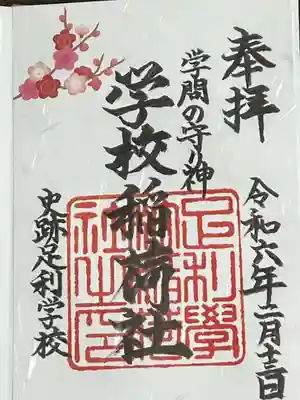 奉拝
令和六年二月十三日
学問の守り神
学校稲荷社
史跡足利学校
足利學
社之印